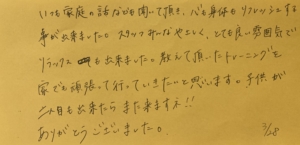 いつも家庭の話なども聞いて頂き、心も身体もリフレッシュする
事が出来ました。スタッフみなやさしく、とても良い雰囲気で
リラックスも出来ました。教えて頂いたトレーニングを
家でも頑張って行っていきたいと思います。子供が
二人目も出来たらまた来ますネ!!
ありがとうございました。
3/28